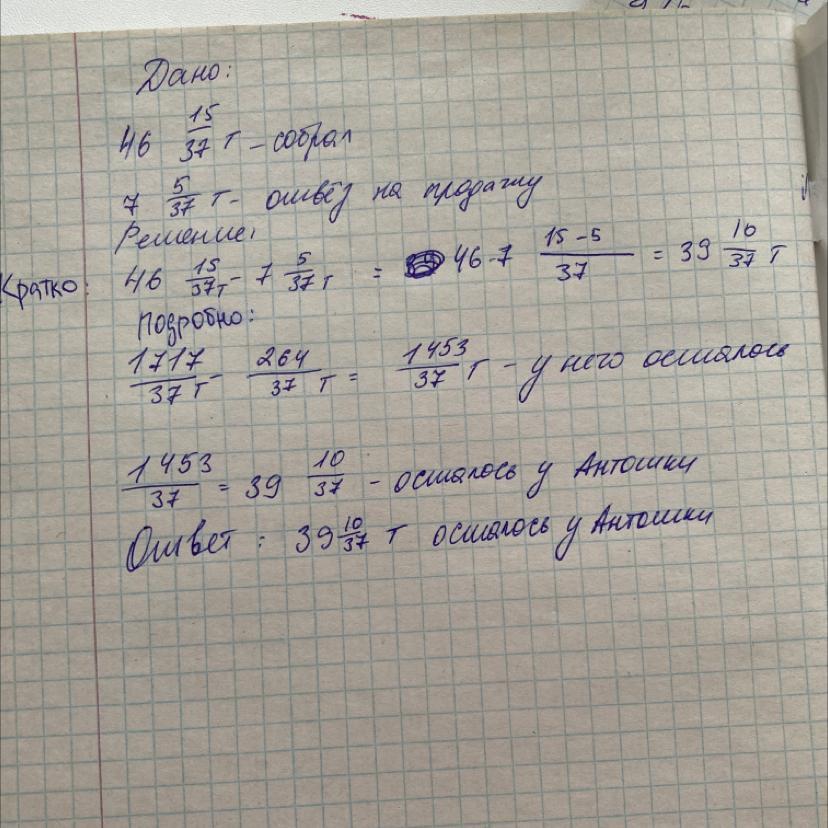 Дано:
46 15/37 т - собрал
7 5/37 т - отвёз на продажу
Решение:
Кратко: 46 15/37 т - 7 5/37 т = 46-7 15-5/37 = 39 10/37 т
Подробно:
1717/37 т - 264/37 т = 1453/37 т - у него осталось
1453/37 = 39 10/37 - осталось у Антошки
Ответ: 39 10/37 т осталось у Антошки